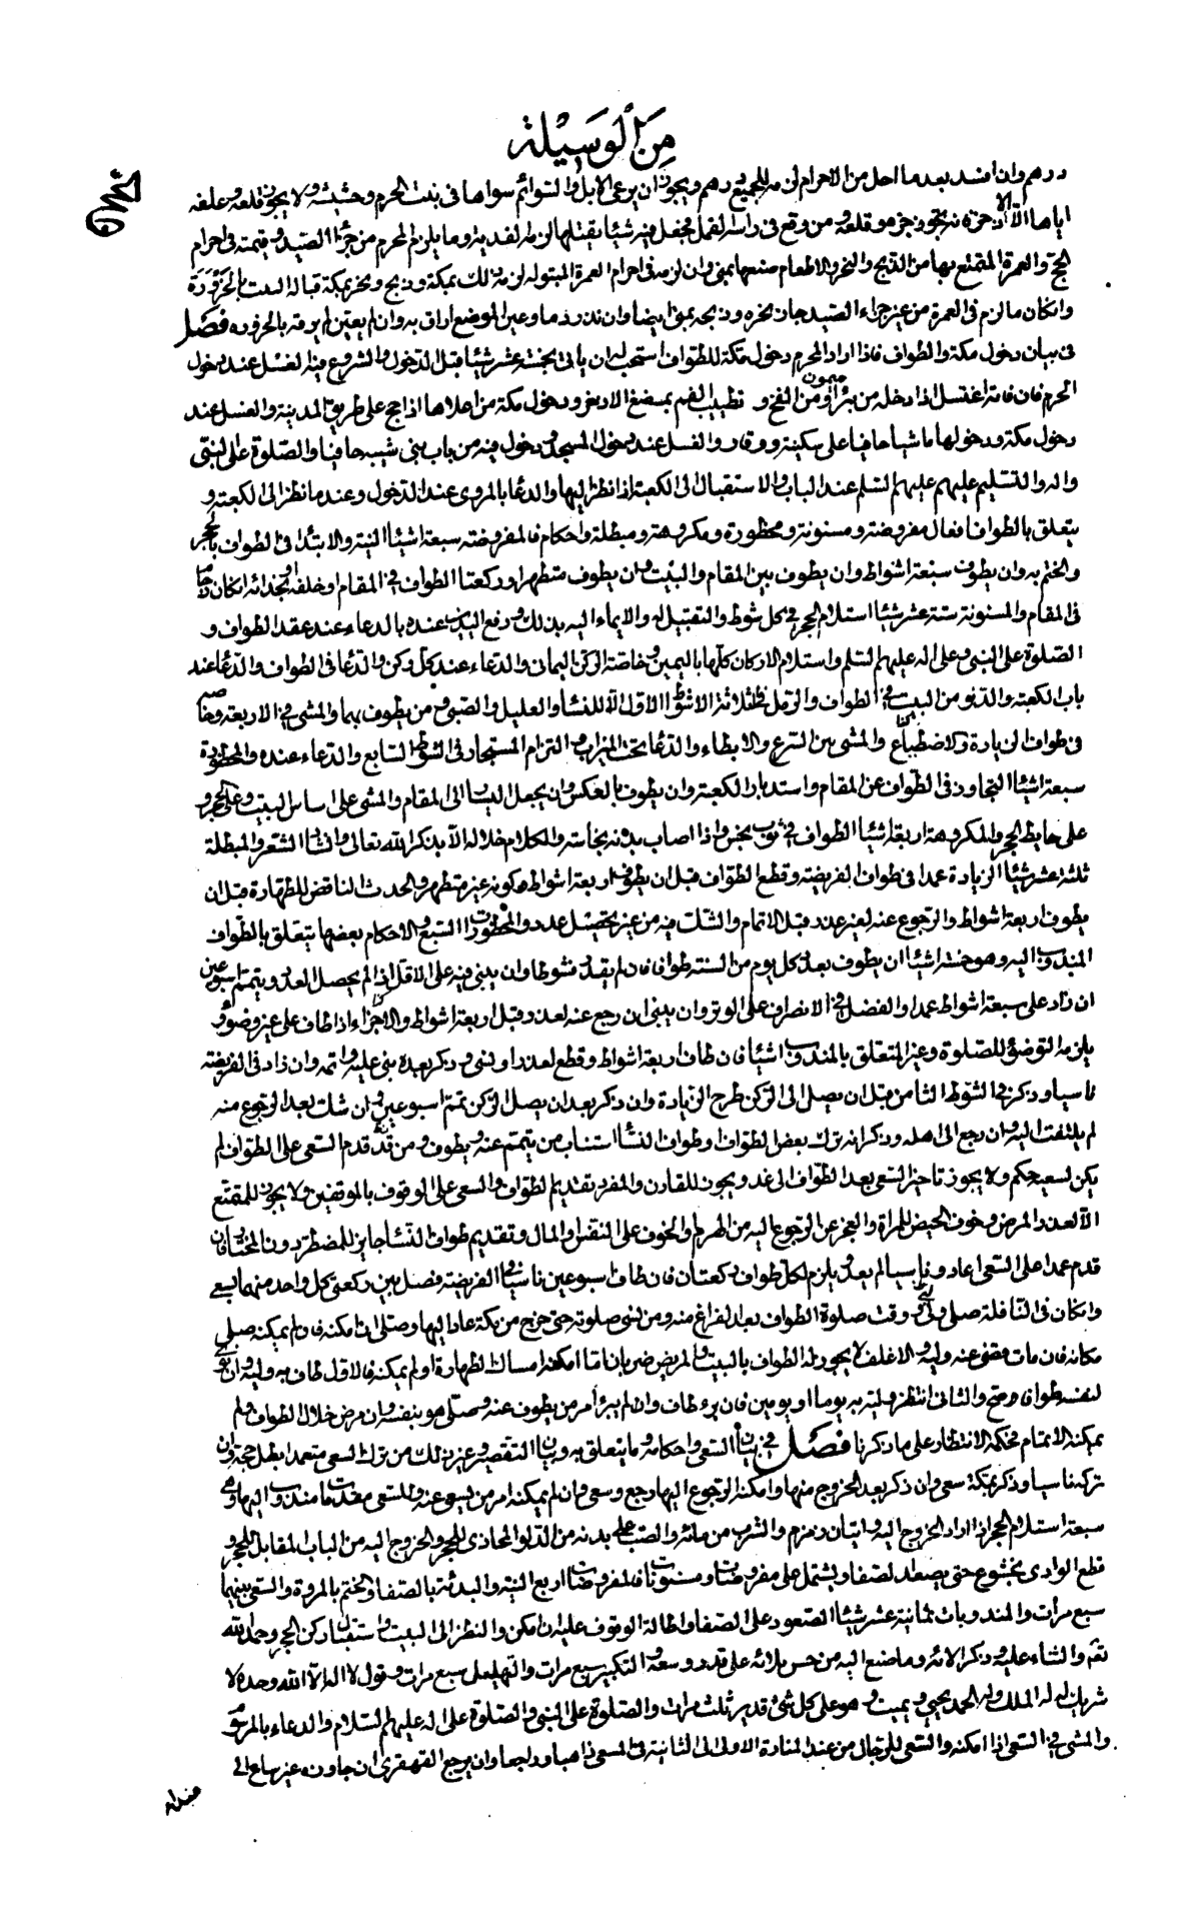 مِنَ الْوَسِيْلة
درهم وان افسد بعد ما احل من الاحرام لزمه للجميع درهم ويجوز ان يرعى الابل والتوائم سواها فى نبت الحرم وحشيشه ولا يجوز قلعه وعلفه
اياها الا الاذخر فانه يجوز جزه وقلعه ومن وقع فى راسه القمل فجعل فيه شيئا يقتلها لزمه الفدية وما يلزم المحرم من جزاء الصيد وقيمته فى احرام
الحج والعمرة المتمتع بها من الذبح والنحر والاطعام صنعها بمنى وان لزمه فى احرام العمرة المبتولة لزمه ذلك بمكة وذبح ونحر بمكة قبالة البيت بالحزورة
وان كان ما لزم فى العمرة من غير جزاء الصيد جاز نحره وذبحه بمنى ايضا وان نذر دما وعين الموضع اراق به وان لم يعين لم يرقه بالحزورة فصل
فى بيان دخول مكة والطواف فاذا اراد المحرم دخول مكة للطواف استحب له ان ياتى بخمسة عشر شيئا قبل الدخول والشروع فيه الغسل عند دخول
الحرم فان فاته اغتسل اذا دخله من بئر ميمون او من الفخ و تطييب الفم بمضغ الاذخر ودخول مكة من اعلاها اذا حج على طريق المدينة والغسل عند
دخول مكة ودخولها ماشيا حافيا على سكينة ووقار والغسل عند دخول المسجد ودخوله فيه من باب بنى شيبه حافيا والصلوة على النبى
واله والتسليم عليهم عليهم السلم عند الباب والاستقبال الى الكعبة اذا نظر اليها والدعا بالمروى عند الدخول وعند ما نظر الى الكعبة و
يتعلق بالطواف افعال مفروضة ومسنونة ومحظورة ومكروهة ومبطلة واحكام فالمفروضة سبعة اشيا النية والابتداء فى الطواف بالحجر
والختم به وان يطوف سبعة اشواط وان يطوف بين المقام والبيت وان يطوف متطهرا وركعتا الطواف فى المقام او خلفه او بحذائه ان كان
فى المقام والمسنونة ستة عشر شيئا استلام الحجر فى كل شوط والتقبيل له والايماء اليه بذلك ورفع اليدين عنده بالدعاء عند عقد الطواف و
الصلوة على النبى وعلى اله عليهم السلم واستلام الاركان كلها باليمين وخاصة الركن اليمانى والدعاء عند كل ركن والدعا فى الطواف والدعا عند
باب الكعبة والدنو من البيت فى الطواف والرمل فى ثلاثة الاشواط الاول الا للنساء والعليل والصبى ومن يطوف بهما والمشى فى الاربعة وخاصة
فى طواف الزيارة والاضطباع والمشى بين السرع والابطاء والدعا تحت الميزاب والتزام المستجار فى الشوط السابع والدعاء عنده والمحظورة
سبعة اشيا التجاوز فى الطواف عن المقام واستدبار الكعبة وان يطوف بالعكس وان يجعل اليسار الى المقام والمشى على اساس البيت وعلى الحجر و
على حايط الحجر والمكروهة اربعة اشيا الطواف فى ثوب نجس واذا اصاب بدنه نجاسة والكلام خلاله الا بذكر الله تعالى وانشاد الشعر والمبطلة
ثلثة عشر شيئا الزيادة عمدا فى طواف الفريضة وقطع الطواف قبل ان يطوف اربعة اشواط وكونه غير متطهر والحدث الناقض للطهارة قبل ان
يطوف اربعة اشواط والرجوع عنه لغير عذر قبل الاتمام والشك فيه من غير تحصيل عدد والمحظورات السبع والاحكام بعضها يتعلق بالطواف
المندوب اليه وهو خمسة اشيا ان يطوف بعدد كل يوم من السنة طواف فان لم يقدر فشوطا وان يبنى فيه على الاقل اذا لم يحصل العدد ويتمم اسبوعين
ان زاد على سبعة اشواط عمدا والفضل فى الانصراف على الوتر وان يبنى ان رجع عنه لعذر وقبل اربعة اشواط والاجزاء اذا طاف على غير وضوء و
يلزمه التوضئ للصلوة وغير المتعلق بالمندوب اشيا فان طاف اربعة اشواط وقطع لعذر او نسى وذكر بعده بنى عليه واتمه وان زاد فى الفريضة
ناسيا وذكر فى الشوط الثامن قبل ان يصل الى الركن طرح الزيادة وان ذكر بعد ان يصل الركن تمم اسبوعين وان شك بعد الرجوع منه
لم يلتفت اليه وان رجع الى اهله وذكر انه ترك بعض الطواف او طواف النسا استناب من يتمم عنه ويطوف ومن قدم السعى على الطواف لم
يكن لسعيه حكم ولا يجوز تاخير السعى بعد الطواف الى غد ويجوز للقارن والمفرد تقديم الطواف والسعى على الوقوف بالموقفين ولا يجوز للمتمتع
الا لعذر المرض وخوف الحيض للمراة والعجز عن الرجوع اليه من الهرم والخوف على النفس والمال وتقديم طواف النسا جايز للمضطر دون المختار فان
قدم عمدا على السعى اعاد وناسيا لم يعد ويلزم لكل طواف ركعتان فان طاف اسبوعين ناسيا فى الفريضة فصل بين ركعتى كل واحد منهما بسعى
وان كان فى النافلة صلى وقت صلوة الطواف بعد الفراغ منه ومن نسى صلوته حتى خرج من مكة عاد اليها وصلى ان امكنه فان لم يمكنه صلى
مكانه فان مات قضى عنه وليه والاغلف لا يجوز له الطواف بالبيت والمريض ضربان اما امكنه امساك الطهارة او لم يمكنه فالاول طاف به وليه
لنفسه طوافا وصح والثانى انتظر وليه به يوما او يومين فان برء طاف وان لم يبرأ امر من يطوف عنه وصلى هو بنفسه وان مرض خلال الطواف ولم
يمكنه الاتمام فحكمه الانتظار على ما ذكرنا فصل فى بيان السعى واحكامه وما يتعلق به وبيان التقصير وغير ذلك من ترك السعى متعمدا بطل حجه وان
تركه ناسيا وذكر بمكة سعى وان ذكر بعد الخروج منها وامكنه الرجوع اليها رجع وسعى وان لم يمكنه امر من يسعى عنه وللسعى مقدمات مندوب اليها وهى
سبعة استلام الحجر اذا اراد الخروج اليه واتيان زمزم والشرب من مائه والصب على بدنه من الدلو المحاذى للحجر والخروج اليه من الباب المقابل للحجر و
قطع الوادى بخشوع حتى يصعد الصفا ويشتمل على مفروضات ومسنونات فالمفروضات اربع النية والبدئة بالصفا والختم بالمروة والسعى بينهما
سبع مرات والمندوبات ثمانية عشر شيئا الصعود على الصفا واطالة الوقوف عليه ان امكن والنظر الى البيت واستقبال ركن الحجر وحمد الله
تعم والثناء عليه وذكر الائه وما صنع اليه من حسن بلائه على قدر وسعه والتكبير سبع مرات والتهليل سبع مرات وقول لا اله الا الله وحده لا
شريك له له الملك وله الحمد يحيى ويميت وهو على كل شئ قدير ثلث مرات والصلوة على النبى والصلوة على اله عليهم السلام والدعاء بالمروى
والمشى فى السعى اذا امكنه والسعى للرجال من عند المنارة الاولى الى الثانية فى المسعى ذاهبا وراجعا وان يرجع القهقرى ان جاوزه غير ساع الى